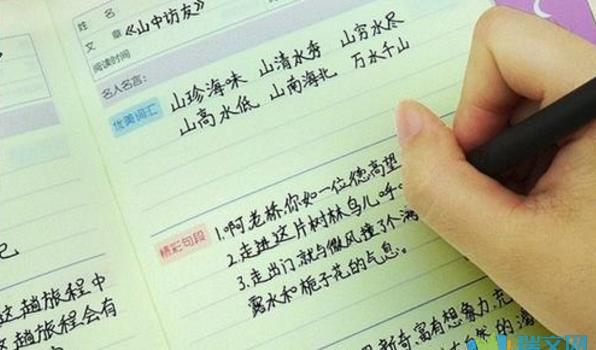 姓 名
文 章 《山中访友》
阅读时间
名人名言:
优美词汇 山珍海味 山清水秀 山穷水尽
山高水低 山南海北 万水千山
精彩句段 1.啊老桥你如一位德高望
2.走进这片树林鸟儿呼
3.走出门就与微风撞了个满
露水和栀子花的气息。
己
这趟旅程中
这趟旅程会有
新奇,富有想象力,充
自然的
瑞文网